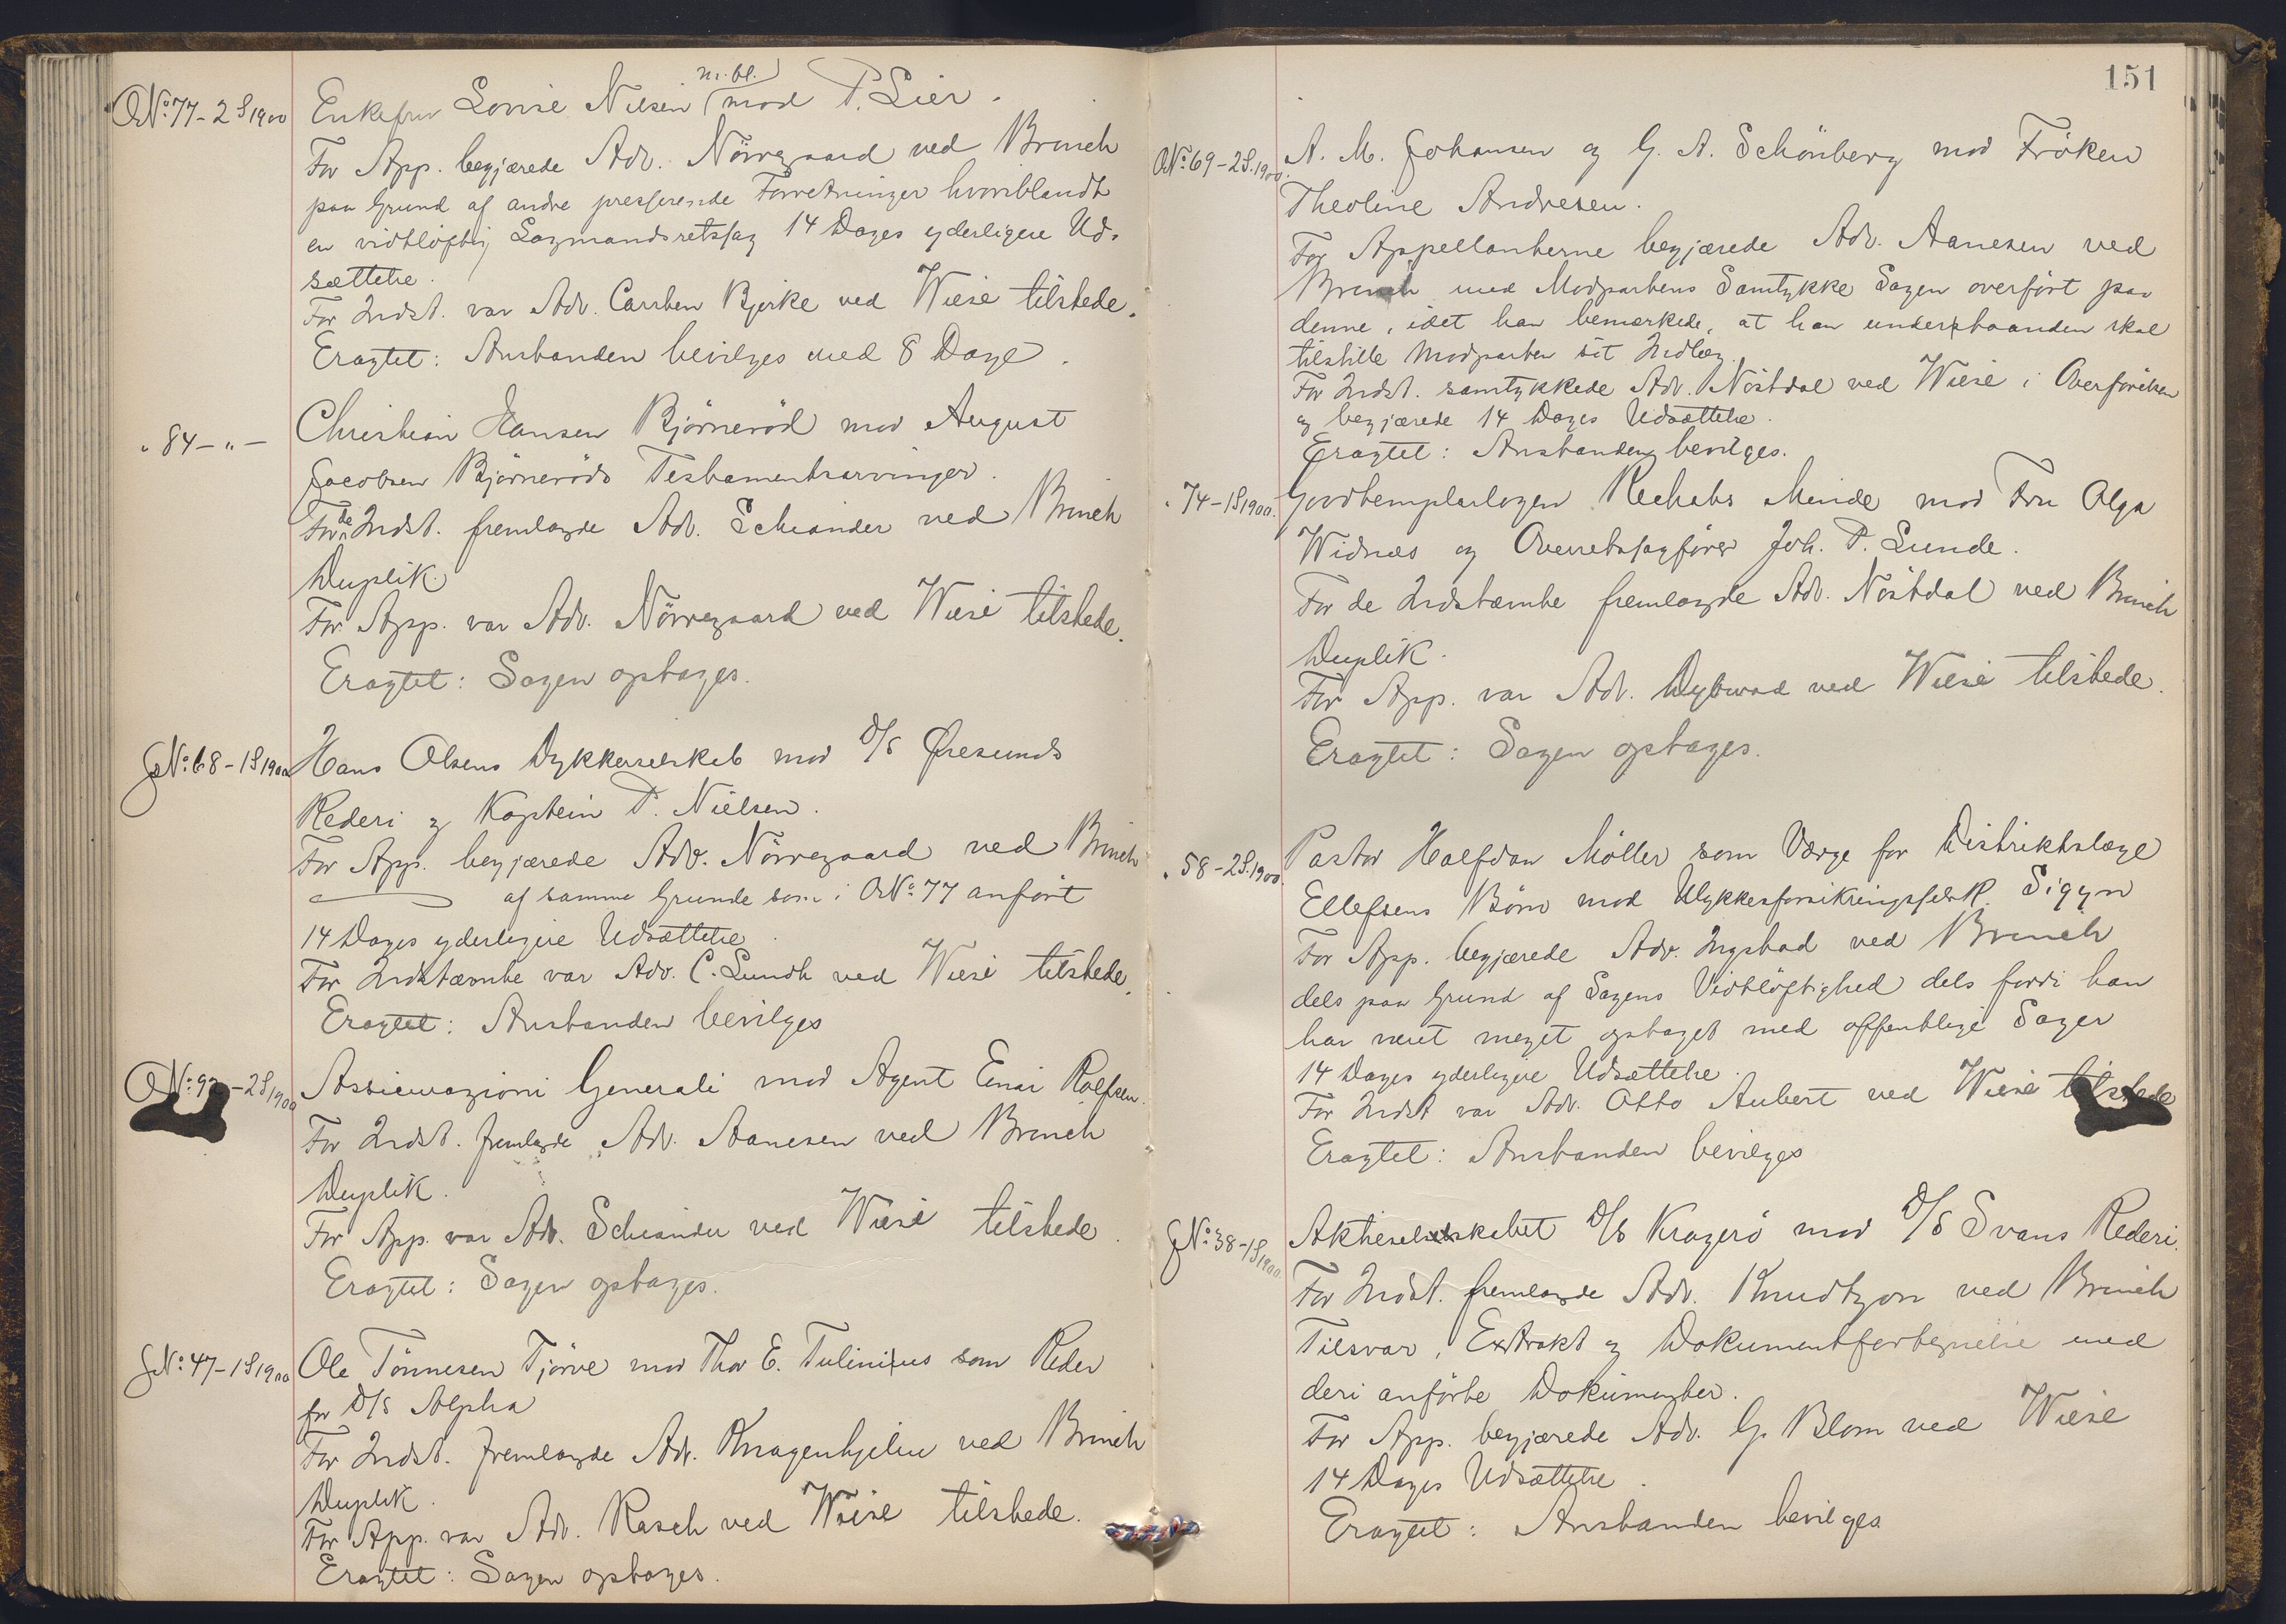 ONo 77 - 2S 1900
Enkefru Lovise Nilsen (m. bl.) mod P. Lier.
For App. begjærede Adv. Nörregaard ved Brinch
paa Grund af andre presserende Forretninger hvoriblandt
en vidtløftig Lagmandsretssag 14 Dages yderligere Ud-
sættelse.
For Indst. var Adv. Carsten Bjerke ved Wiese tilstede.
Eragtet: Anstanden bevilges med 8 Dage.
" 84 - " -
Christian Hansen Björneröd mod August
Jacobsen Björneröds Testamentsarvinger.
For de Indst. fremlagde Adv. Scheander ved Brinch
Duplik.
For App. var Adv. Nörregaard ved Wiese tilstede.
Eragtet: Sagen optages.
GNo 68 - 1S 1900
Hans Olsens Dykkerselskab mod D/S Øresunds
Rederi og Kaptein P. Nielsen.
For App. begjærede Adv. Nörregaard ved Brinch
af samme Grunde som i ONo 77 anfört
14 Dages yderligere Udsættelse.
For Indstævnte var Adv. C. Lundh ved Wiese tilstede.
Eragtet: Anstanden bevilges
ONo 92 - 2S 1900
Assicurazioni Generali mod Agent Einar Rolfsen.
For Indst. fremlagde Adv. Aanesen ved Brinch
Duplik.
For App. var Adv. Scheander ved Wiese tilstede.
Eragtet: Sagen optages.
GNo 47 - 1S 1900
Ole Tönnesen Tjörve mod Thor E. Tulinius som Reder
for D/S Alpha
For Indst. fremlagde Adv. Knagenhjelm ved Brinch
Duplik.
For App. var Adv. Rasch ved Wiese tilstede.
Eragtet: Sagen optages.
151
ONo 69 - 2S. 1900.
A. M. Johansen og G. A. Schönberg mod Fröken
Theoline Andresen.
For Appellanterne begjærede Adv. Aanesen ved
Brinch med Modpartens Samtykke Sagen overfört paa
denne, idet han bemærkede, at han underhaanden skal
tilstille Modparten sit Indlæg.
For Indst. samtykkede Adv. Nöstdal ved Wiese i Overförelsen
og begjærede 14 Dages Udsættelse.
Eragtet: Anstanden bevilges.
" 74 - 1S 1900.
Goodtemplarlogen Rechabs Minde mod Fru Olga
Widnæs og Overretssagförer Joh. P. Lunde.
For de Indstævnte fremlagde Adv. Nöstdal ved Brinch
Duplik.
For App. var Adv. Dybwad ved Wiese tilstede.
Eragtet: Sagen optages.
" 58 - 2S. 1900.
Pastor Halfdan Möller som Værge for Distriktslæge
Ellefsens Börn mod Ulykkesforsikringsselsk. Sigyn
For App. begjærede Adv. Ingstad ved Brinch
dels paa Grund af Sagens Vidtlöftighed dels fordi han
har været meget optaget med offentlige Sager
14 Dages yderligere Udsættelse.
For Indst var Adv. Otto Aubert ved Wiese tilstede
Eragtet: Anstanden bevilges
GNo 38 - 1S 1900.
Aktieselskabet D/S Kragerö mod D/S Svans Rederi.
For Indst. fremlagde Adv. Knudtzon ved Brinch
Tilsvar, Extrakt og Dokumentfortegnelse med
deri anförte Dokumenter.
For App. begjærede Adv. G. Blom ved Wiese
14 Dages Udsættelse.
Eragtet: Anstanden bevilges